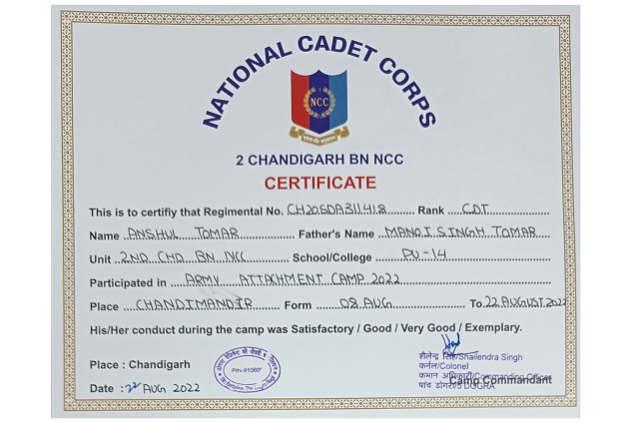 NATIONAL CADET CORPS
NCC
2 CHANDIGARH BN NCC
CERTIFICATE
This is to certifiy that Regimental No. CH20SDA311418 Rank CDT
Name ANSHUL TOMAR Father's Name MANOJ SINGH TOMAR
Unit 2ND CHD BN NCC School/College PU-14
Participated in ARMY ATTACHMENT CAMP 2022
Place CHANDIMANDIR Form 08 AUG To 22 AUGUST 2022
His/Her conduct during the camp was Satisfactory / Good / Very Good / Exemplary.
Place : Chandigarh
Date : 22 AUG 2022
शैलेन्द्र सिंह/Shailendra Singh
कर्नल/Colonel
कमान अधिकारी/Commanding Officer
पांच डोगरा/5 DOGRA
Camp Commandant